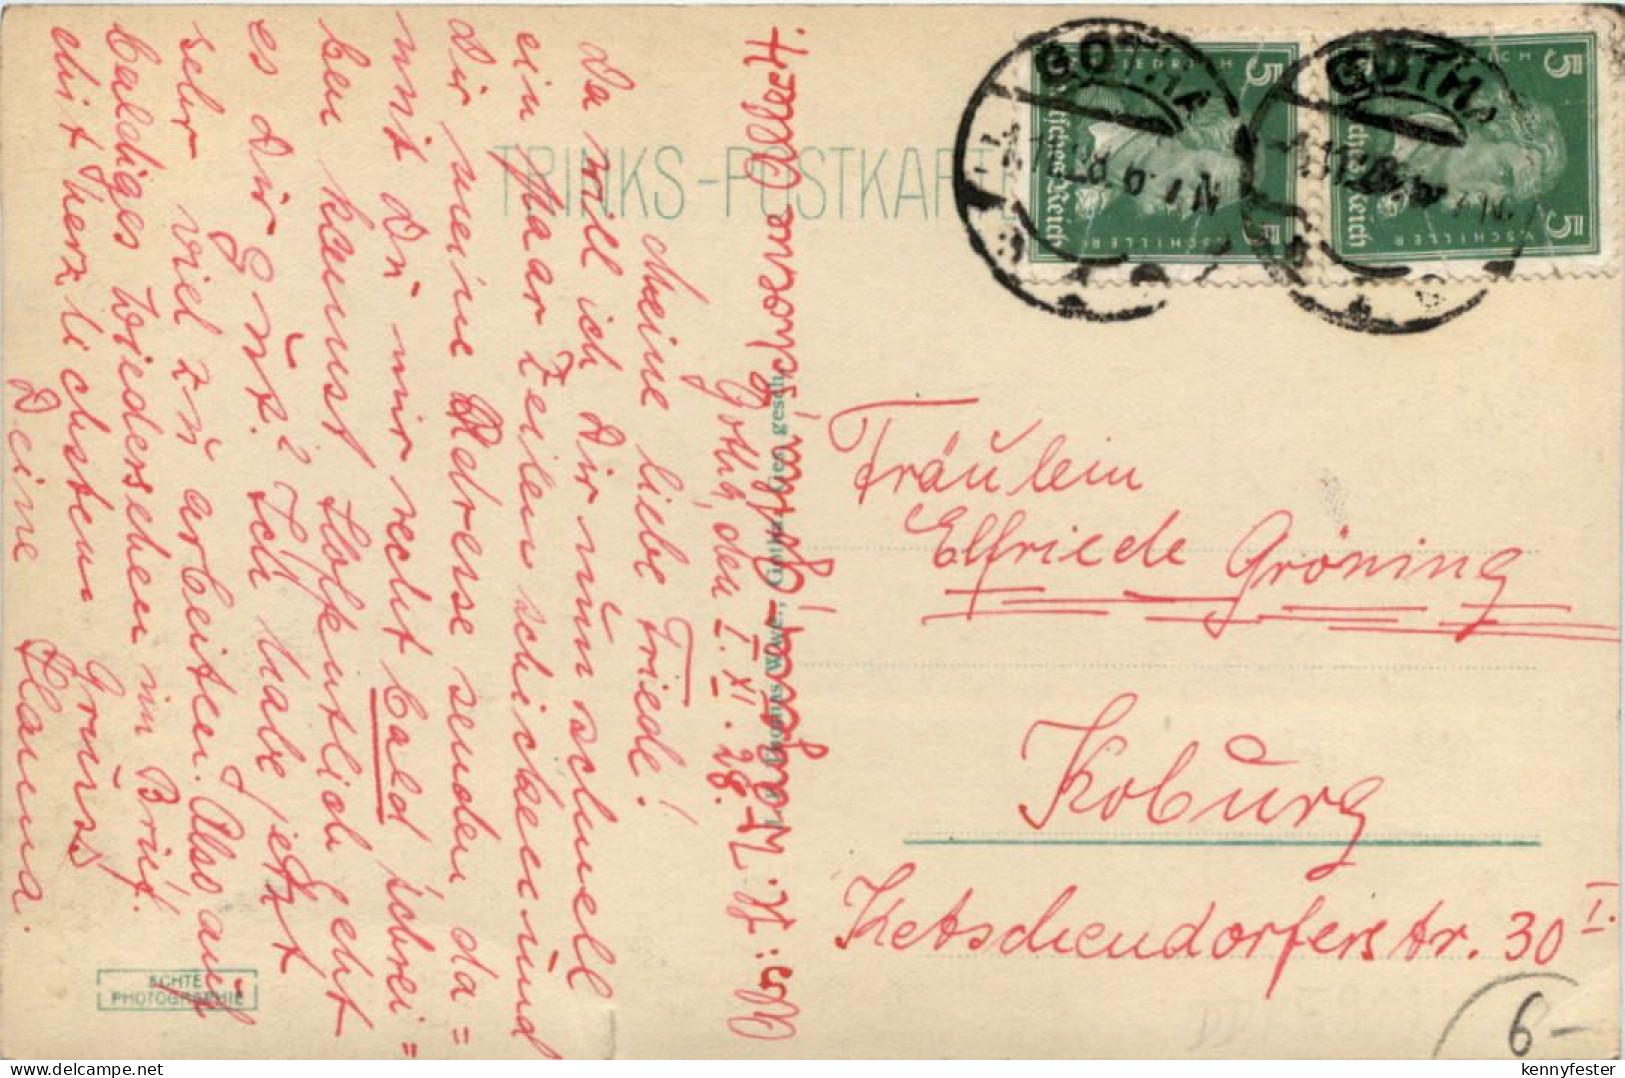 Gotha, den I. XI. 28.
Meine liebe Friede!
Da will ich Dir nun schnell
ein paar Zeilen schicken und
Dir meine Adresse senden da=
mit Du mir recht bald schrei=
ben kannst. Hoffentlich geht
es Dir gut.? Ich habe jetzt
sehr viel zu arbeiten. Also auf
baldiges Wiedersehen im Brief.
Mit herzlichsten Grüßs
Deine Hanna.
Wagner Gotha, schoene Allee 4.
TRINKS-POSTKARTE
Gotha. Ges. gesch.
ECHTE
PHOTOGRAPHIE
GOTHA
GOTHA
5
5
FRIEDRICH
V. SCHILLER
Deutsches Reich
5
5
V. SCHILLER
Deutsches Reich
Fräulein
Elfriede Gröning
Koburg
Ketschendorferstr. 30 I.
6-
kennyfester